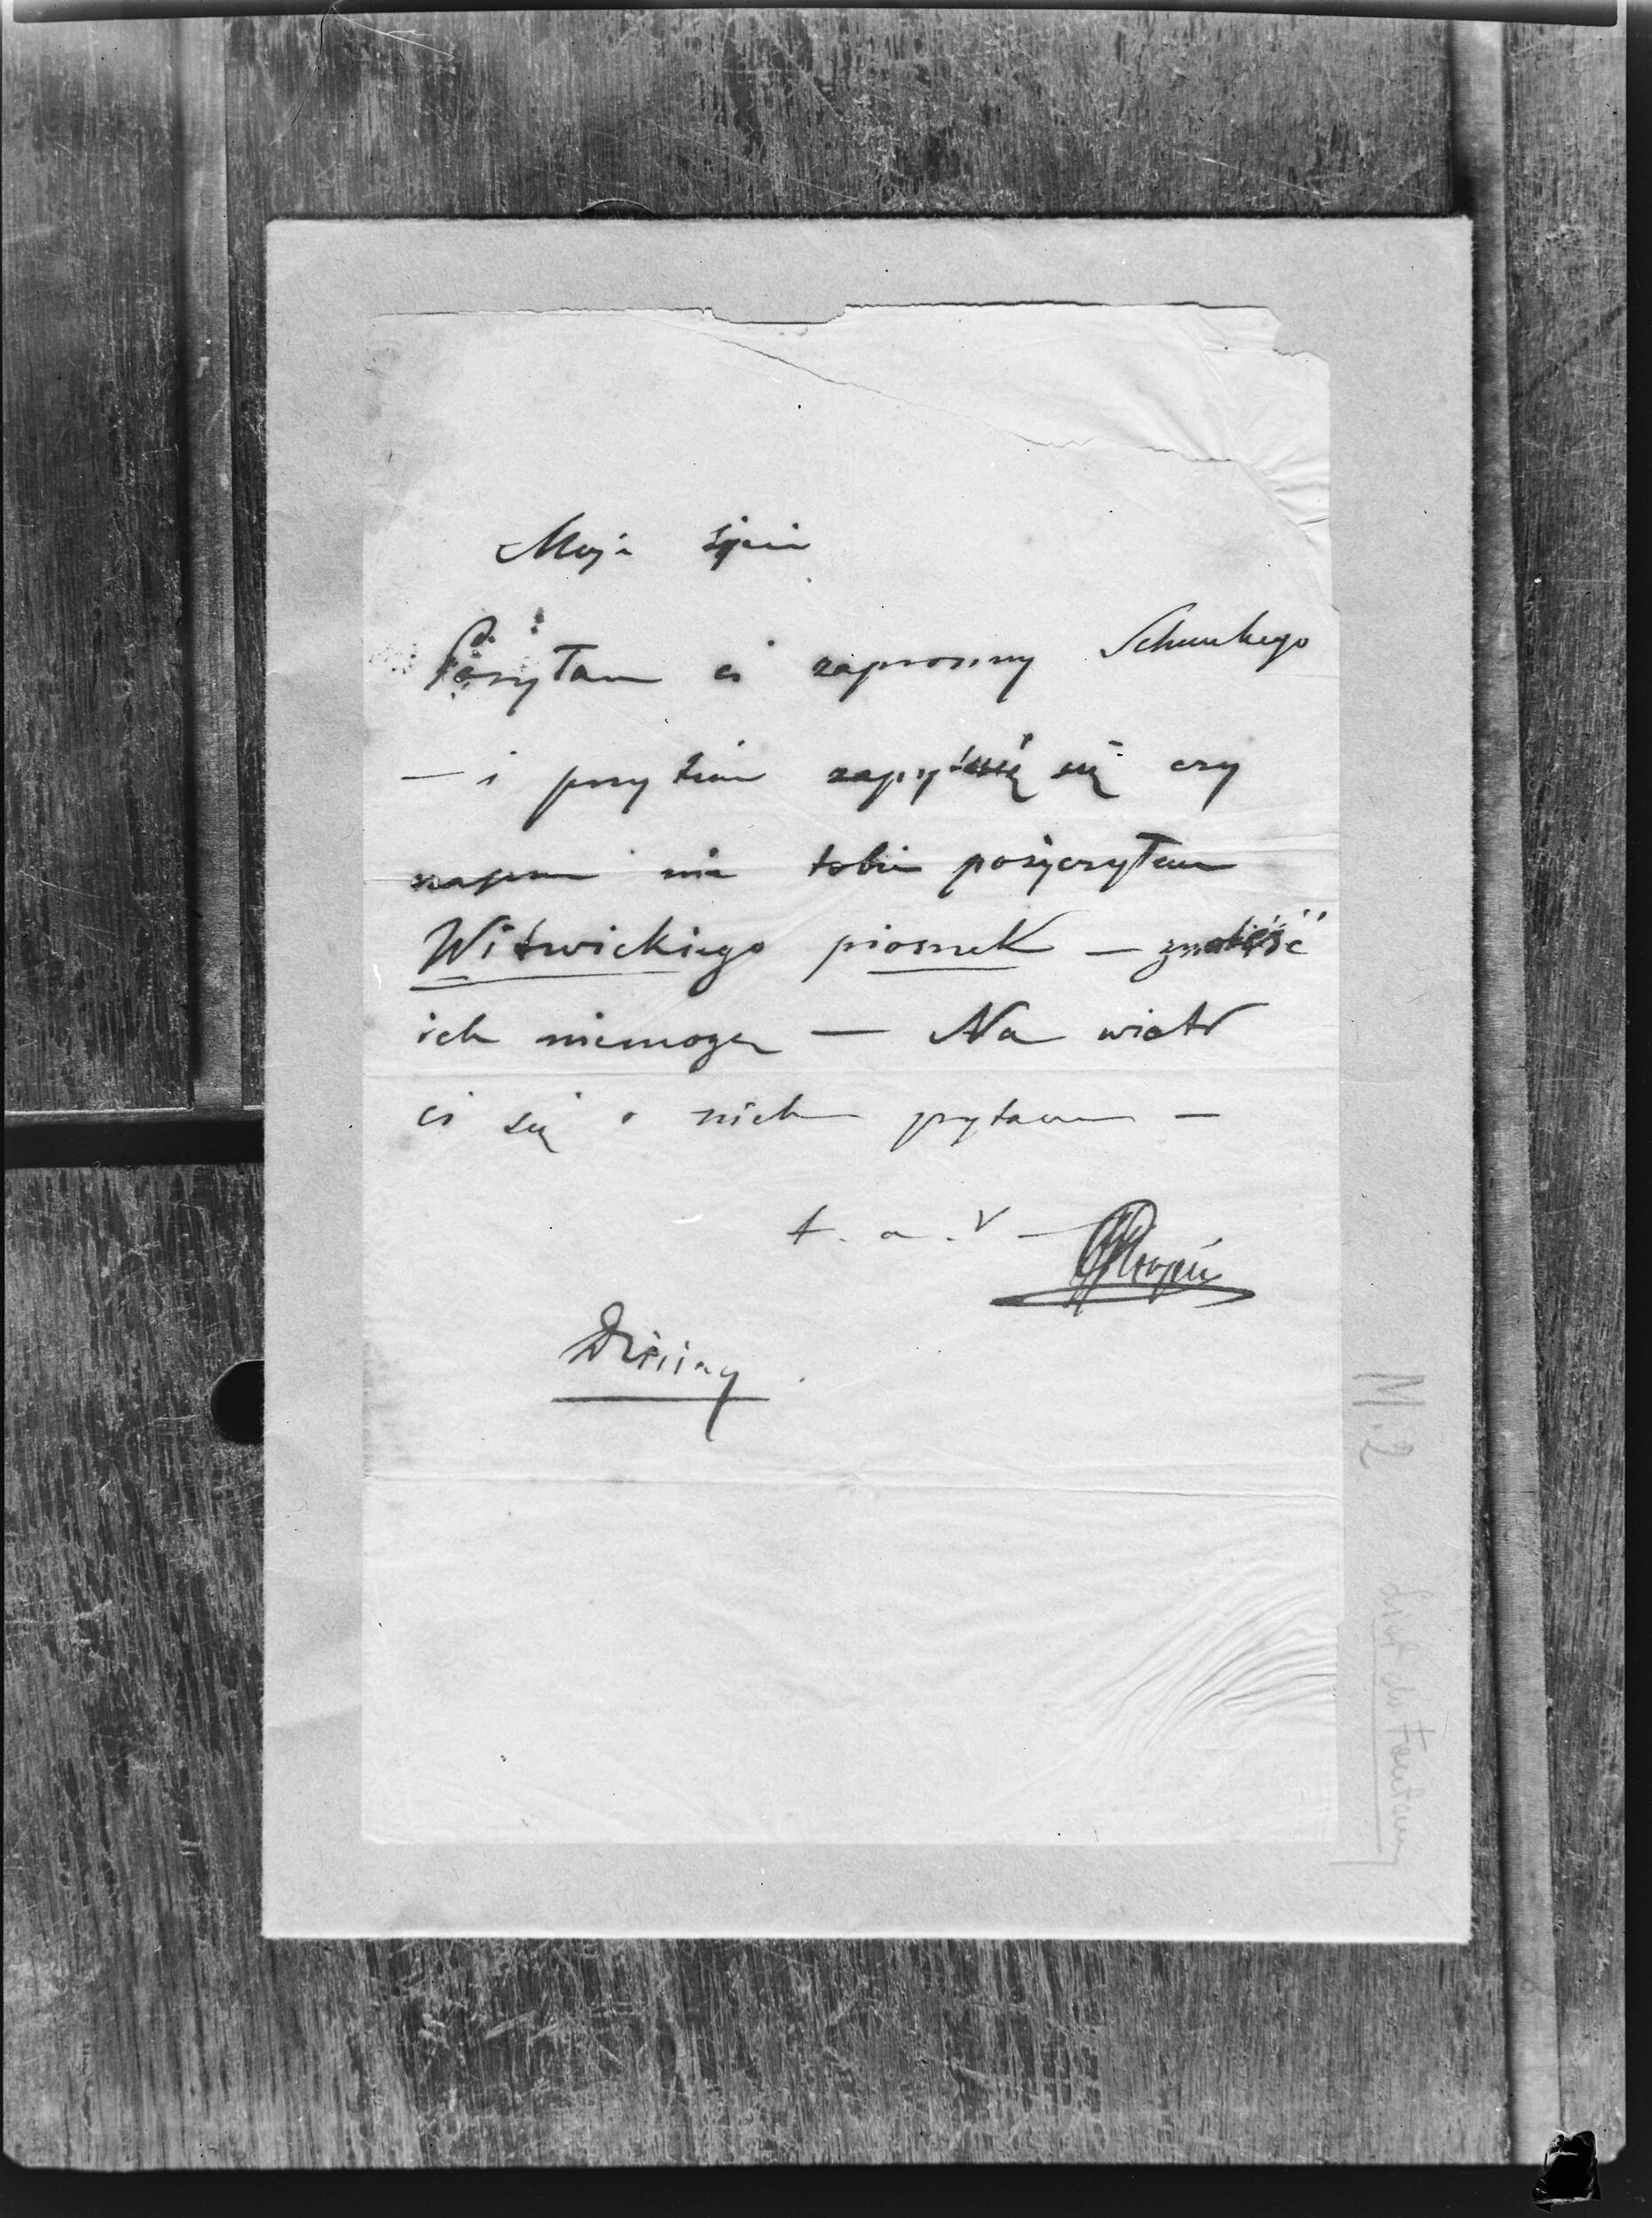 Moje życie
Posyłam ci zaprosiny Schunkego
— i przytém zapytuię się czy
czasem nie tobie pożyczyłem
Witwickiego piosnek — znaleśść
ich niemogę — Na wiatr
ci się o nich pytam —
t. a. v — Chopin
Dzisiay
N. 2
List do Fontany